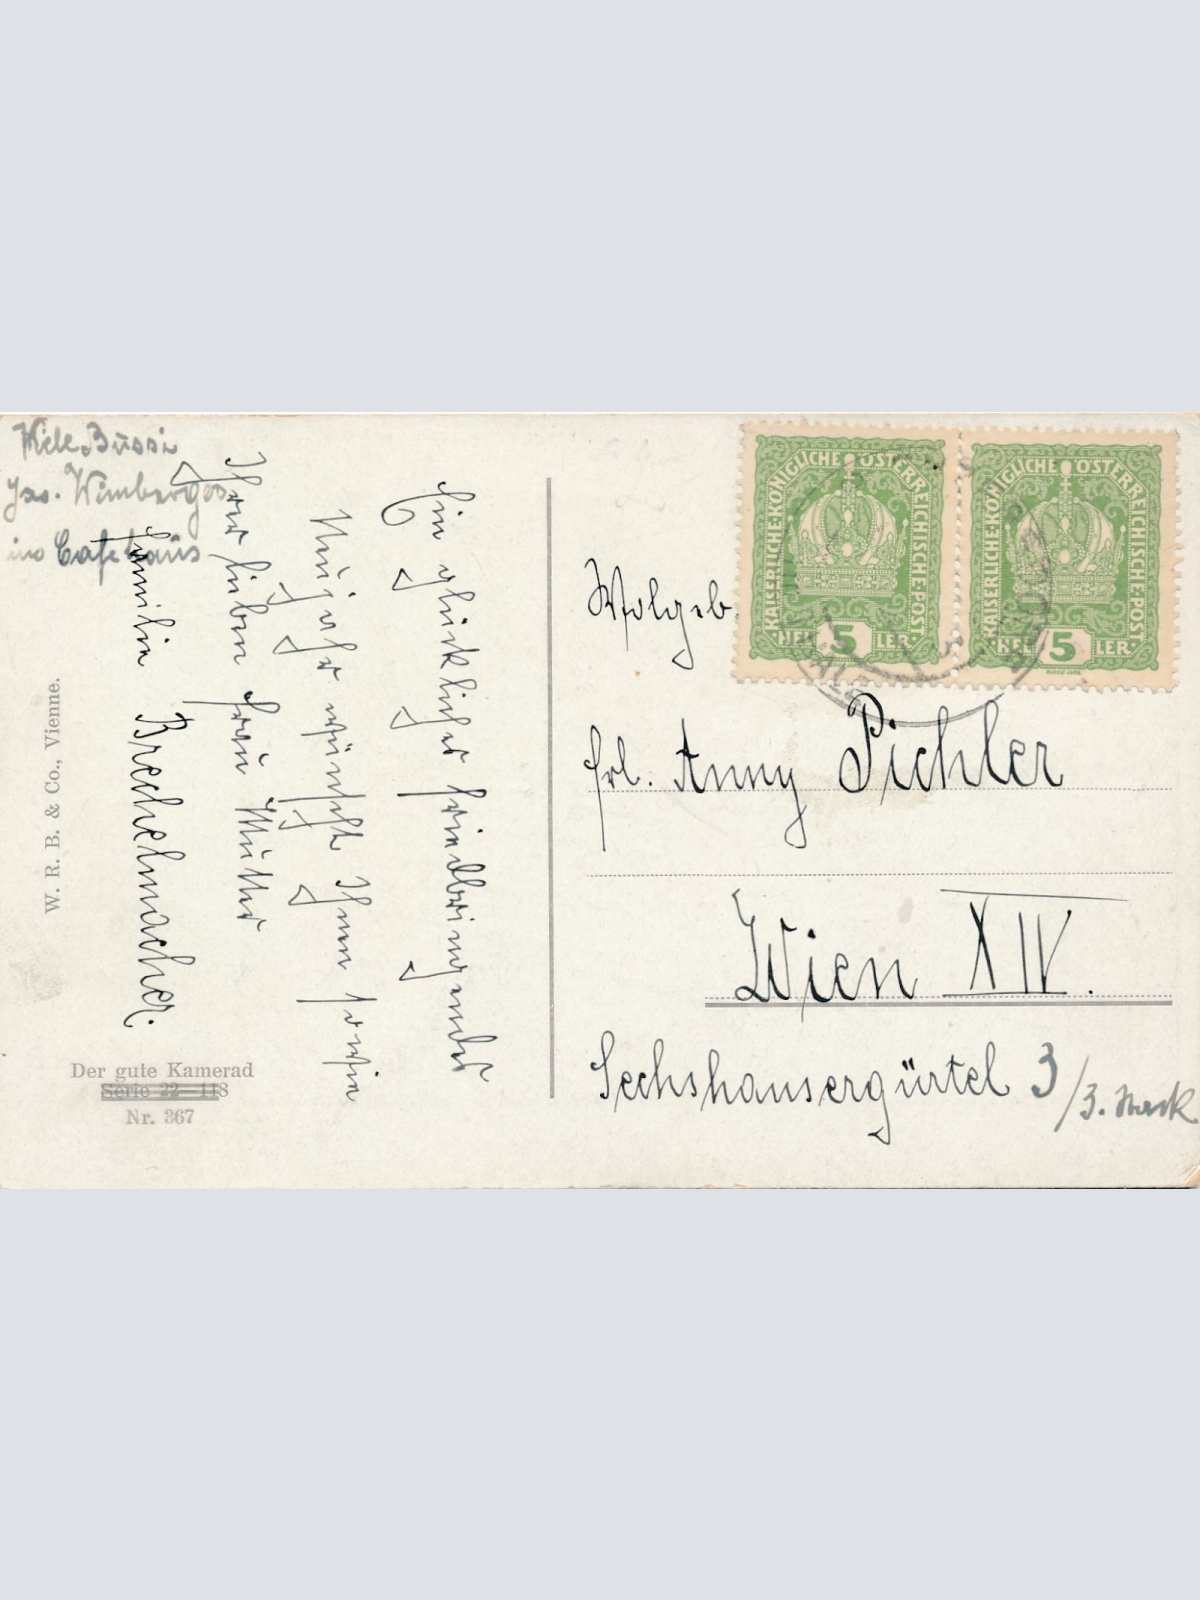 Viele Bussi
ins Cafehaus
Ein glücklicher friedbringender
Neujahr wünscht Ihnen sowie
Ihrer lieben Frau Mutter
Familie Brechelmacher.
W. R. B. & Co., Vienne.
Der gute Kamerad
Serie 22—118
Nr. 367
KAISERLICHE·KÖNIGLICHE ÖSTERREICHISCHE·POST·
HEL 5 LER·
KAISERLICHE·KÖNIGLICHE ÖSTERREICHISCHE·POST·
HEL 5 LER·
Wolgeb.
Frl. Anny Pichler
Wien XIV.
Sechshausergürtel 3/3. Stock